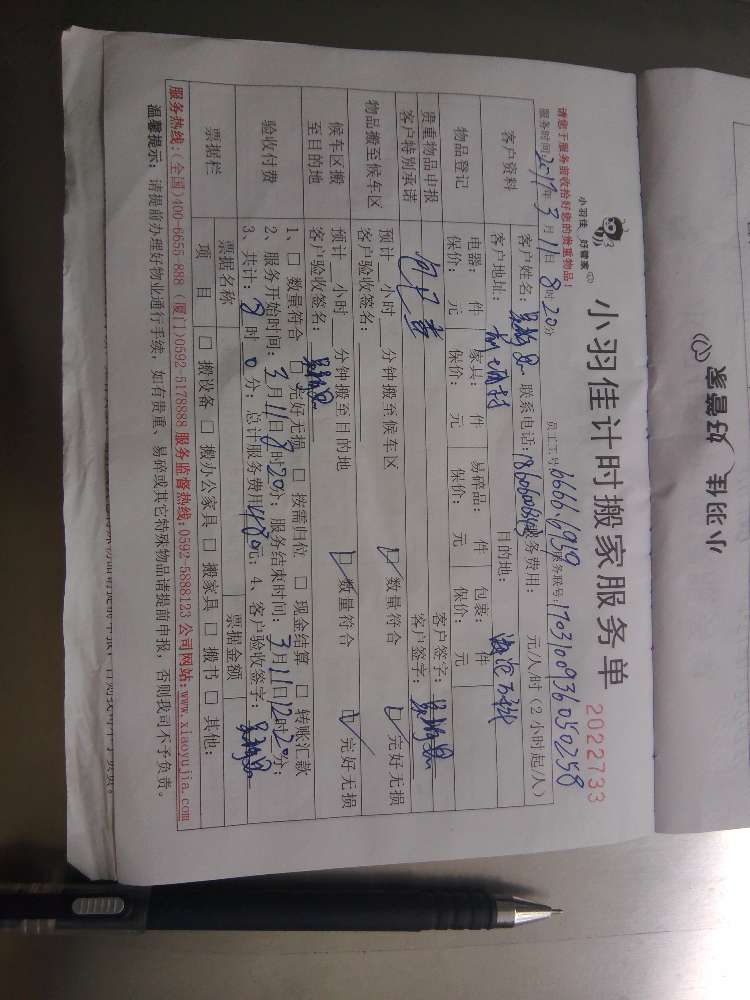 小羽佳 好管家
小羽佳 好管家
小羽佳计时搬家服务单
2022733
请您于服务前收拾好您的贵重物品！
员工工号: 6666.6959 服务账号: 1703100936050258
服务时间: 2017年3月11日8时20分
客户资料
客户姓名: 联系电话: 服务费用: 元/人/时（2小时起/人）
客户地址: 目的地:
物品登记
电器: 件 家具: 件 易碎品: 件 包裹: 件
保价: 元 保价: 元 保价: 元 保价: 元
贵重物品申报 客户签字:
客户特别承诺 客户签字:
物品搬至候车区
预计 小时 分钟搬至候车区 数量符合 完好无损
客户验收签名:
候车区搬至目的地
预计 小时 分钟搬至目的地 数量符合 完好无损
客户验收签名:
验收付费
1、□ 数量符合 □ 完好无损 □ 按需归位 □ 现金结算 □ 转账汇款
2、服务开始时间: 3月11日8时20分; 服务结束时间: 3月11日12时20分;
3、共计: 8时0分; 总计服务费用480元; 4、客户验收签字:
票据栏
票据名称 票据金额
项目 □ 搬设备 □ 搬办公家具 □ 搬家具 □ 搬书 □ 其他:
服务热线:(全国)400-6655-888 (厦门)0592-5178888 服务监督热线:0592-5888123 公司网站:www.xiaoyujia.com
温馨提示: 请提前办理好物业通行手续, 如有贵重、易碎或其它特殊物品请提前申报, 否则我司不予负责。